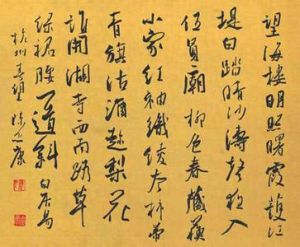 望海樓明照曙霞護江
堤白踏晴沙濤聲夜入
伍員廟柳色春藏蘇
小家紅袖織綾夸柿蒂
青旗沽酒趁梨花
誰開湖寺西南路草
綠裙腰一道斜 白居易
杭州春望 康